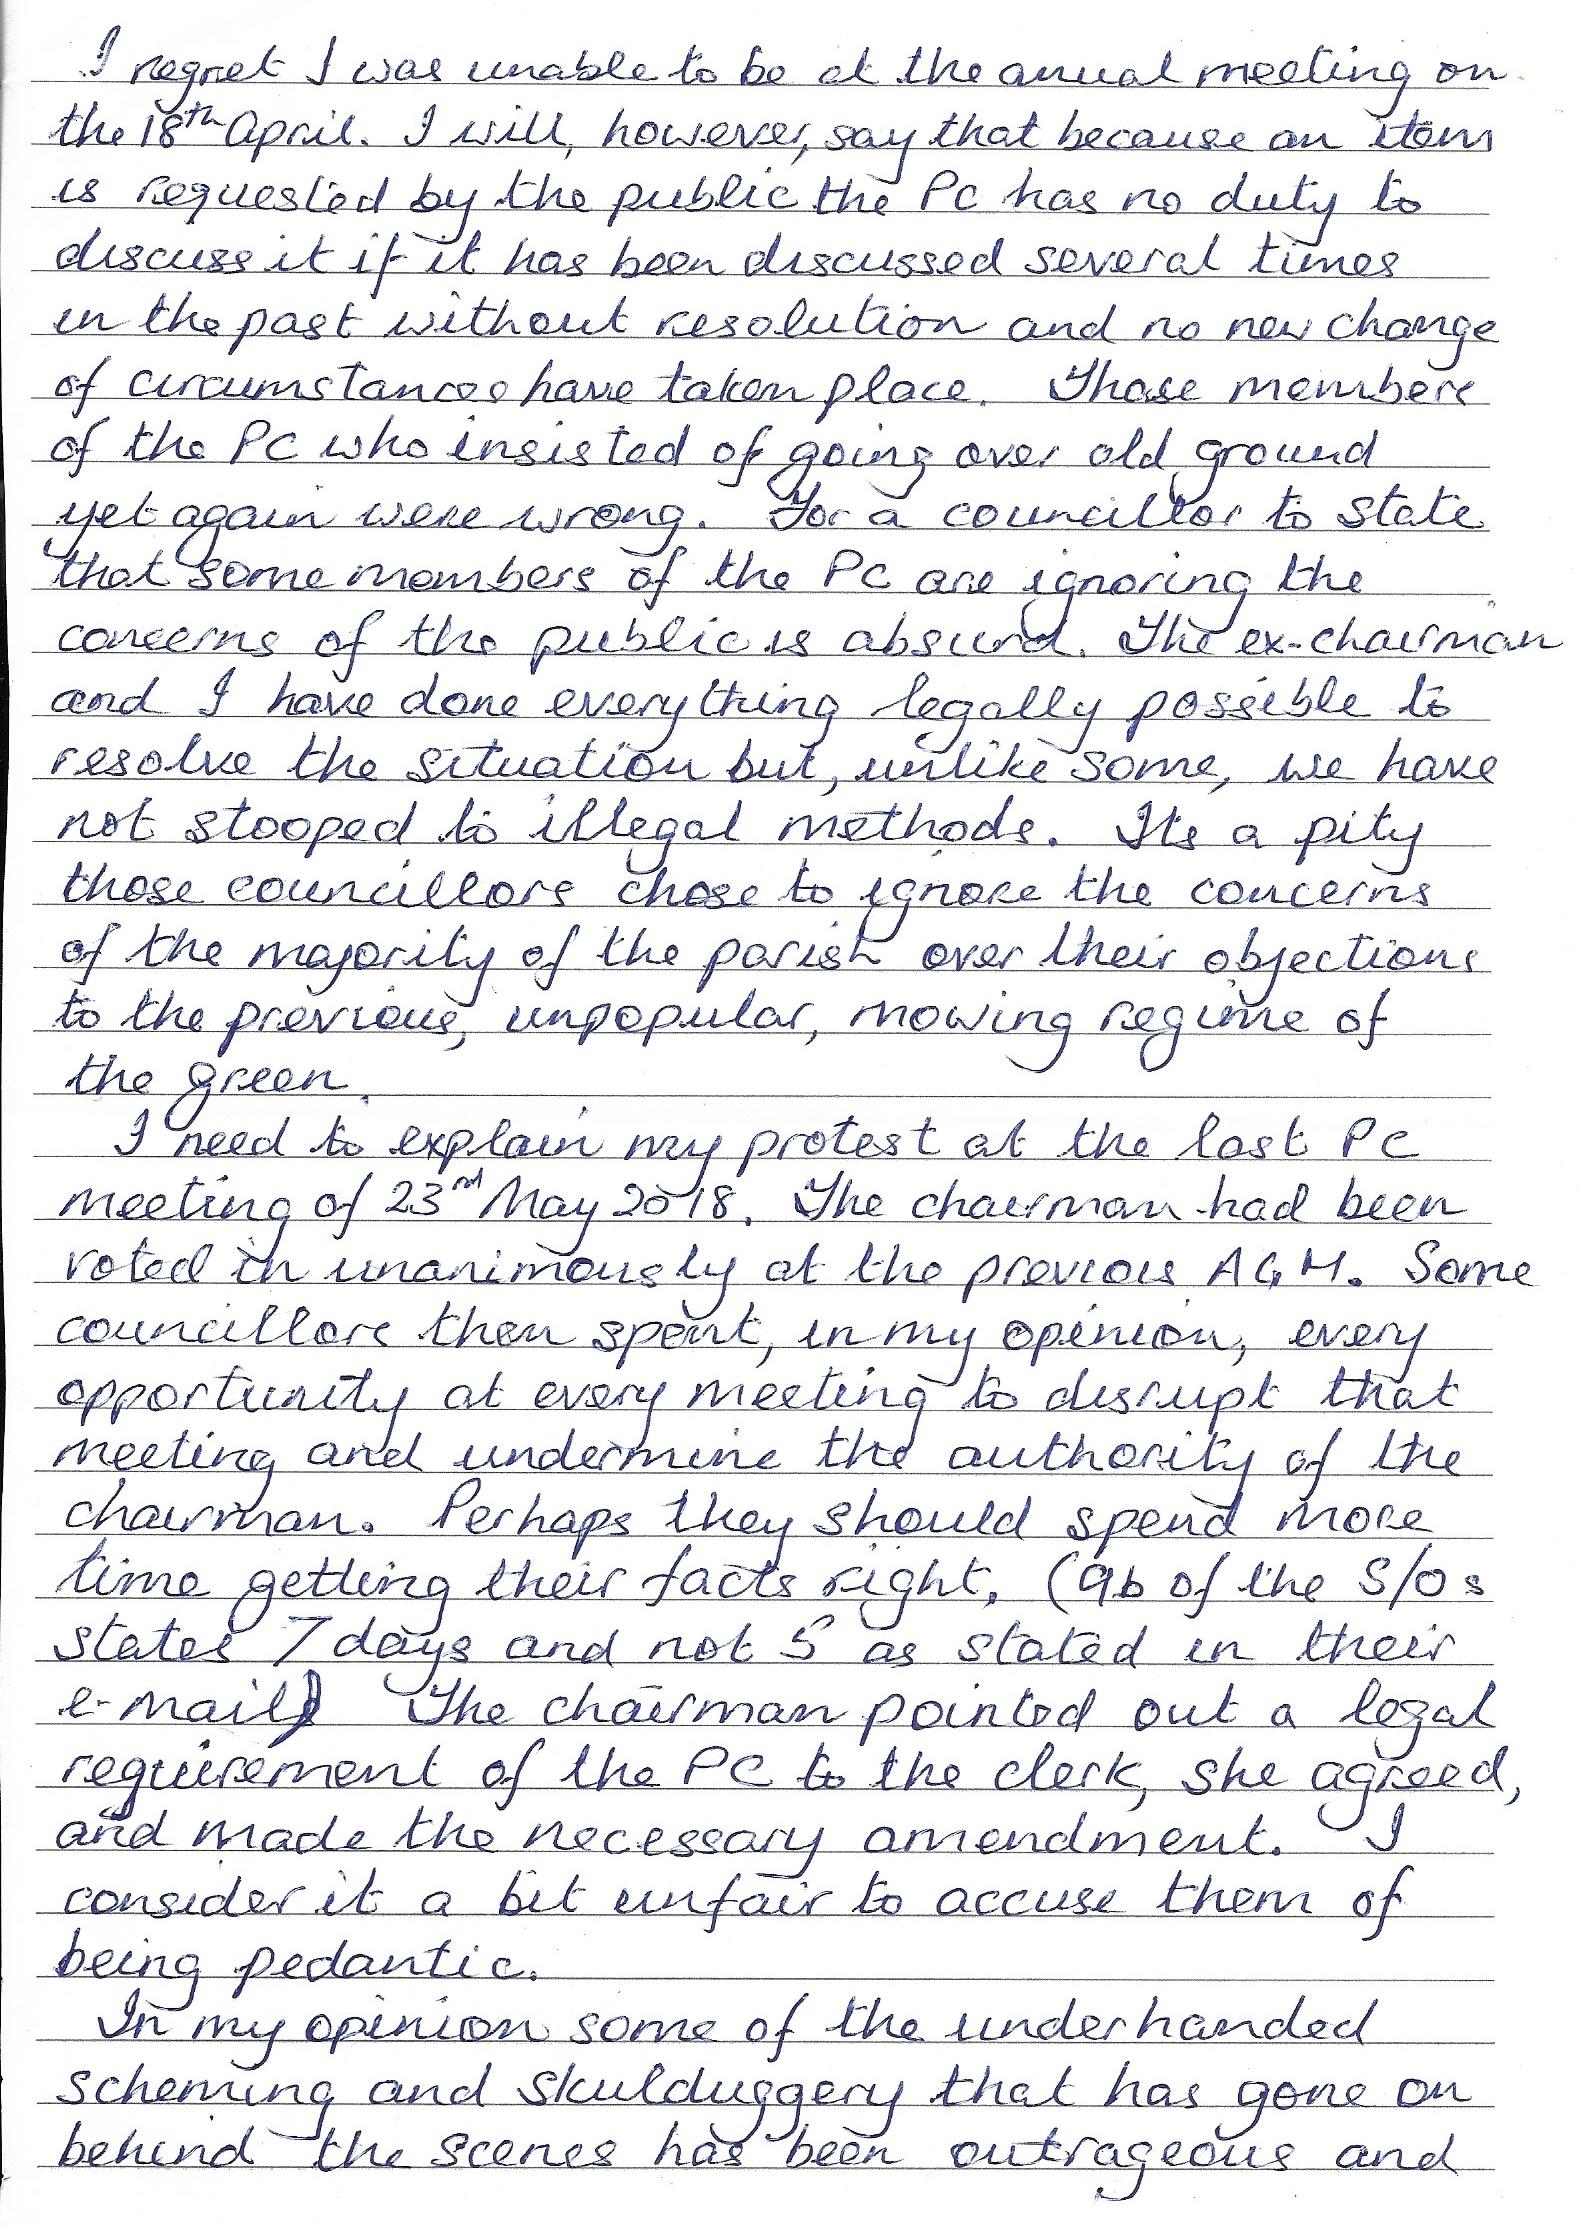 I regret I was unable to be at the anual meeting on
the 18th April. I will, however, say that because an item
is requested by the public the PC has no duty to
discuss it if it has been discussed several times
in the past without resolution and no new change
of circumstances have taken place. Those members
of the PC who insisted of going over old ground
yet again were wrong. For a councillor to state
that some members of the PC are ignoring the
concerns of the public is absurd. The ex-chairman
and I have done everything legally possible to
resolve the situation but, unlike some, we have
not stooped to illegal methods. Its a pity
those councillors chose to ignore the concerns
of the majority of the parish over their objections
to the previous, unpopular, mowing regime of
the green.
I need to explain my protest at the last PC
meeting of 23rd May 2018. The chairman had been
voted in unanimously at the previous AGM. Some
councillors then spent, in my opinion, every
opportunity at every meeting to disrupt that
meeting and undermine the authority of the
chairman. Perhaps they should spend more
time getting their facts right, (9b of the S/Os
states 7 days and not 5 as stated in their
e-mail) The chairman pointed out a legal
requirement of the PC to the clerk, she agreed,
and made the necessary amendment. I
consider it a bit unfair to accuse them of
being pedantic.
In my opinion some of the underhanded
scheming and skulduggery that has gone on
behind the scenes has been outrageous and